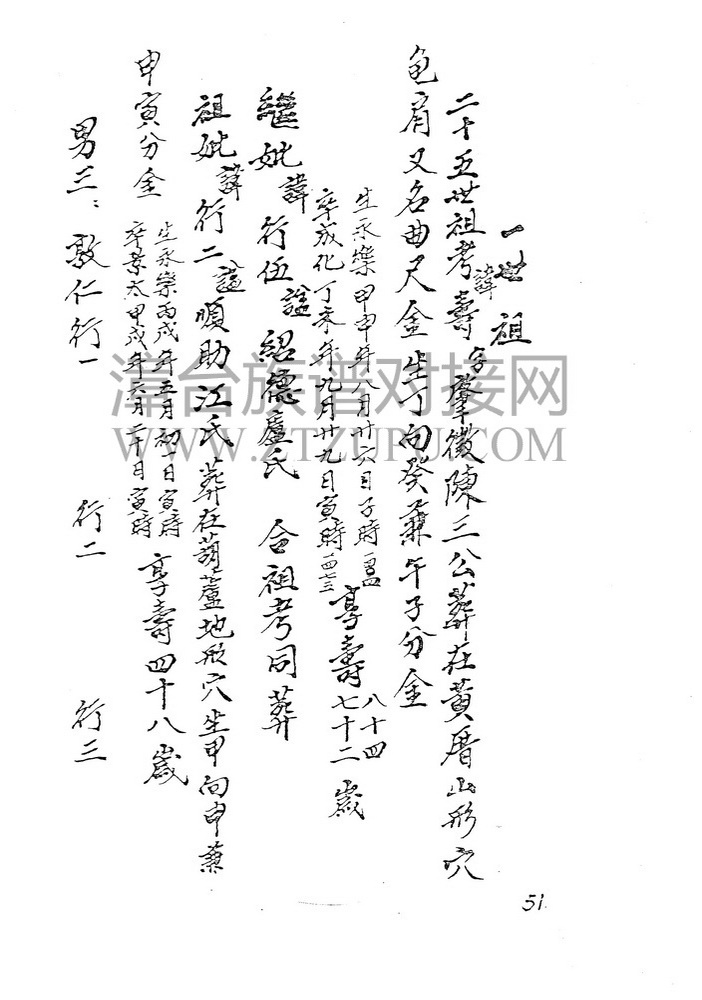 一世祖
二十五世祖考壽諱字肇徵陳三公葬在黄厝山形穴
龟肩又名曲尺金坐丁向癸兼午子分金
生永樂甲申年八月廿六日子時
卒成化丁未年九月廿九日寅時 享壽八十四七十二歲
繼妣諱行伍諡紹德盧氏 合祖考同葬
祖妣諱行二諡順助江氏葬在葫蘆地形穴坐甲向申兼
甲寅分金 生永樂丙戌年五月初一日寅時
卒景太甲戌年六月二十日寅時 享壽四十八歲
男三：敦仁行一 行二 行三
51
漳台族谱对接网
WWW.ZTZUPU.COM